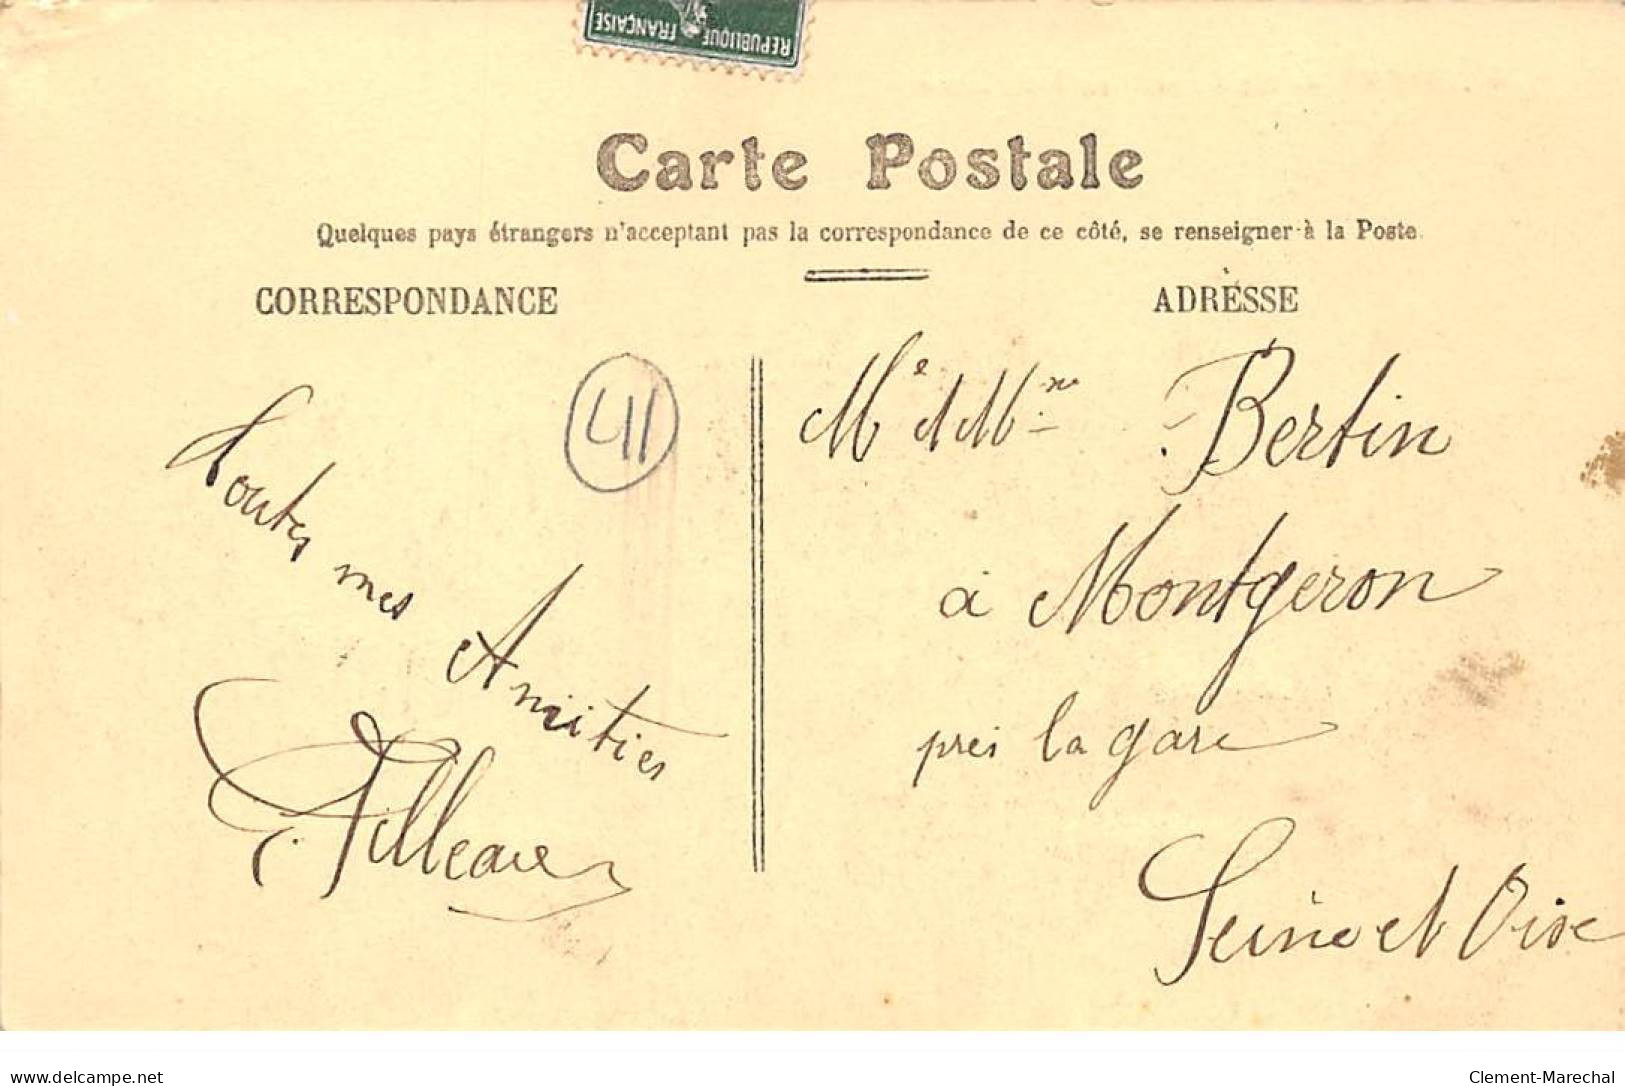 REPUBLIQUE FRANÇAISE
Carte Postale
Quelques pays étrangers n'acceptent pas la correspondance de ce côté, se renseigner à la Poste.
CORRESPONDANCE
ADRESSE
41
Toutes mes
Amitiés
Mr et Mme Bertin
à Montgeron
près la gare
Seine et Oise
delcampe.net
Clement-Marechal